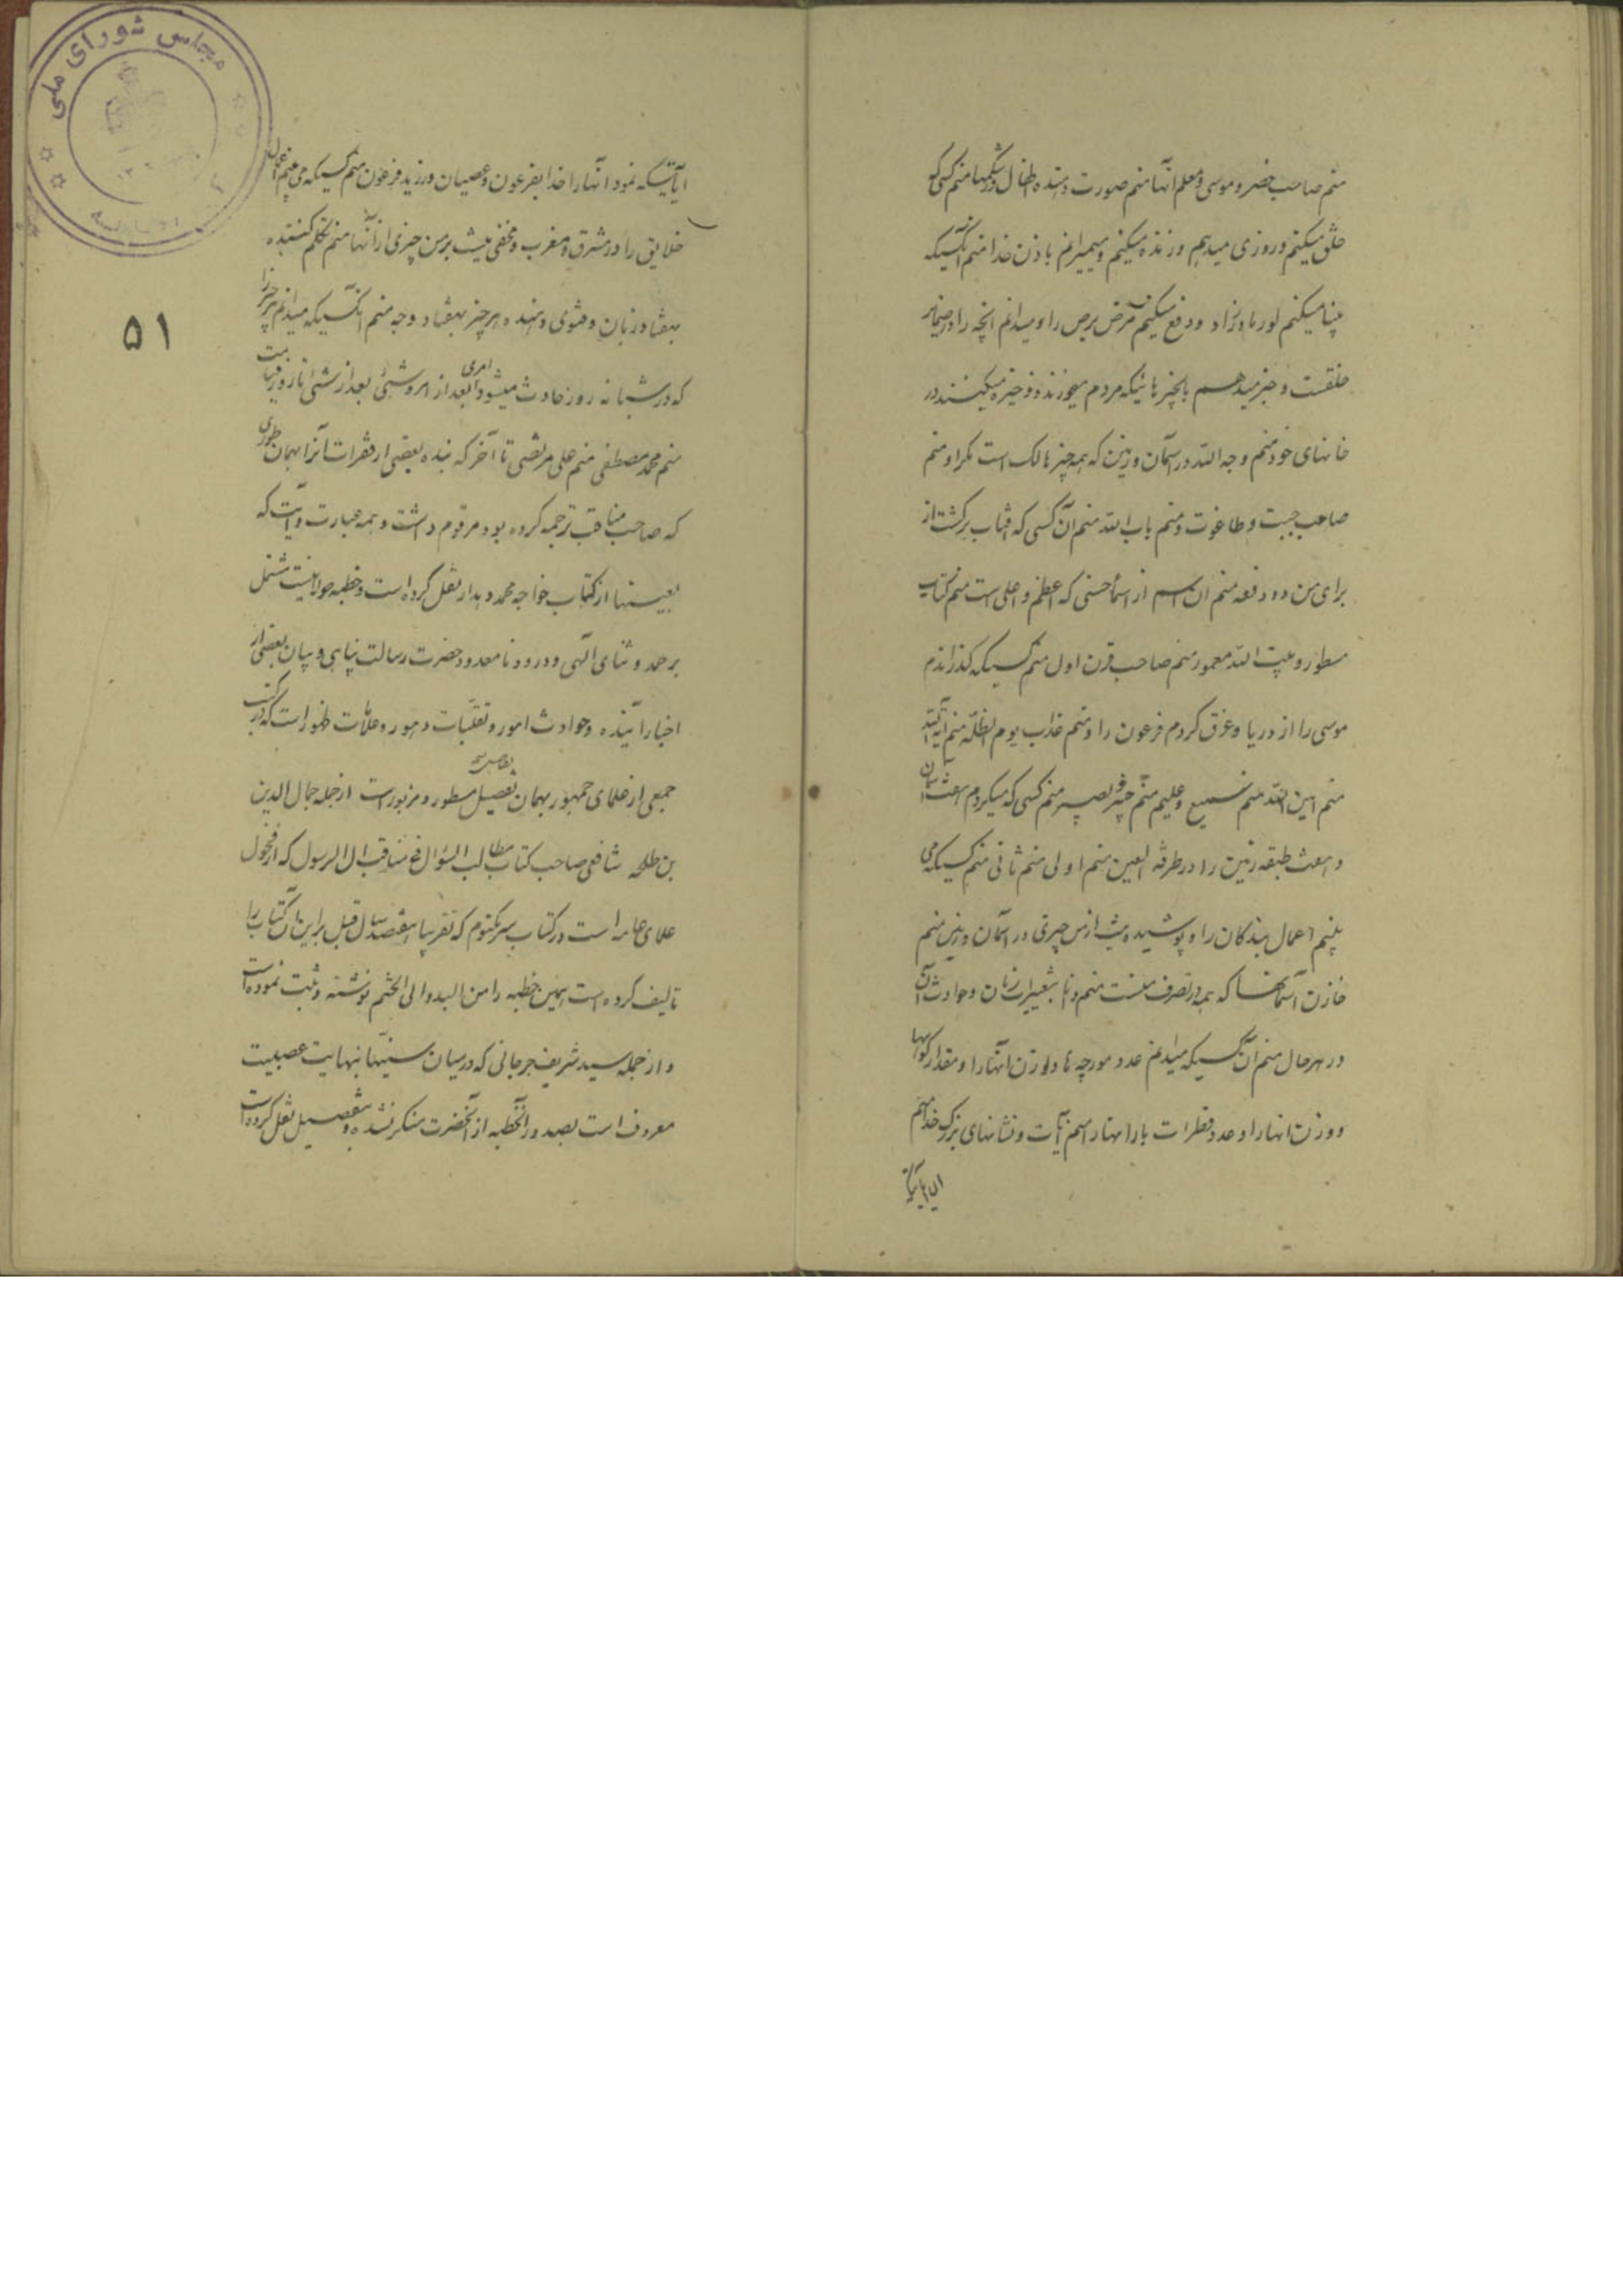 منم صاحب خضر و موسی و معلم آنها منم صورت دهنده اطفال در شکمها منم کسی که
خلق میکنم و روزی میدهم و زنده میکنم و میمیرانم باذن خدا منم آنکسیکه
بینا میکنم کور مادرزاد و دفع میکنم مرض برص را و میدانم آنچه را در ضمایر
خلقست و خبر میدهم بانچیزهائیکه مردم میخورند و ذخیره میکنند در
خانهای خود منم وجه الله در آسمان و زمین که همه چیز هالک است مگر او منم
صاحب جبت و طاغوت و منم باب الله منم آن کسی که آفتاب برگشت از
برای من دو دفعه منم آن اسم از اسمأ حسنی که اعظم و اعلی است منم کتاب
مسطور و بیت الله معمور منم صاحب قرن اول منم کسیکه گذراندم
موسی را از دریا و غرق کردم فرعون را و منم عذاب یوم الظله منم آیة الله
منم امین الله منم سمیع و علیم منم خبیر و بصیر منم کسی که میگردم هفت آسمان
و هفت طبقه زمین را در طرفه العین منم اولی منم ثانی منم کسیکه می
بینم اعمال بندگان را و پوشیده نیست از من چیزی در آسمان و زمین منم
خازن آسمانها که همه در تصرف منست منم دانا بتغییرات زمان و حوادث آن
در هر حال منم آن کسیکه میدانم عدد مورچه ها و وزن آنها را و مقدار کوهها
و وزن انها را و عدد قطرات بارانها را منم آیات و نشانهای بزرگ خدا منم
ان آیاتیکه
آیاتیکه نمود آنها را خدا بفرعون و عصیان ورزید فرعون منم کسیکه می بینم اعمال
خلایق را در مشرق و مغرب و مخفی نیست بر من چیزی از آنها منم تکلم کننده
بهفتاد زبان و فتوی دهنده هر چیز بهفتاد وجه منم آنکسیکه میدانم هر چیز را
که در شبانه روز حادث میشود امری بعد از امر و شیئی بعد از شیئی تا روز قیامت
۵۱
منم محمد مصطفی منم علی مرتضی تا آخر که بنده بعضی از فقرات آنرا بهمان طوری
که صاحب مناقب ترجمه کرده بود مرقوم داشت و همه عبارت و آیت که
بعینها از کتاب خواجه محمد دهدار نقل کرده است و خطبه مولائیست مشتمل
بر حمد و ثنای الهی و درود نامعدود حضرت رسالت پناهی و بیان بعضی از
اخبار آینده و حوادث امور و تقلبات دهور و علامات ظهور است که در کتب
جمعی از علمای جمهور بهمان تفصیل مسطور و مزبور است از جمله جمال الدین
بن طلحه شافعی صاحب کتاب مطالب السؤال فی مناقب ال الرسول که از فحول
علمای عامه است در کتاب سر مکتوم که تقریبا هفتصد سال قبل بر این آن کتاب را
تالیف کرده است همین خطبه را من البدو الی الختم نوشته و ثبت نموده است
و از جمله سید شریف جرجانی که در میان سنیها بنهایت عصبیت
معروف است بصدور آنخطبه از آنحضرت منکر نشده و بتفصیل نقل کرده است
مجلس شورای ملی